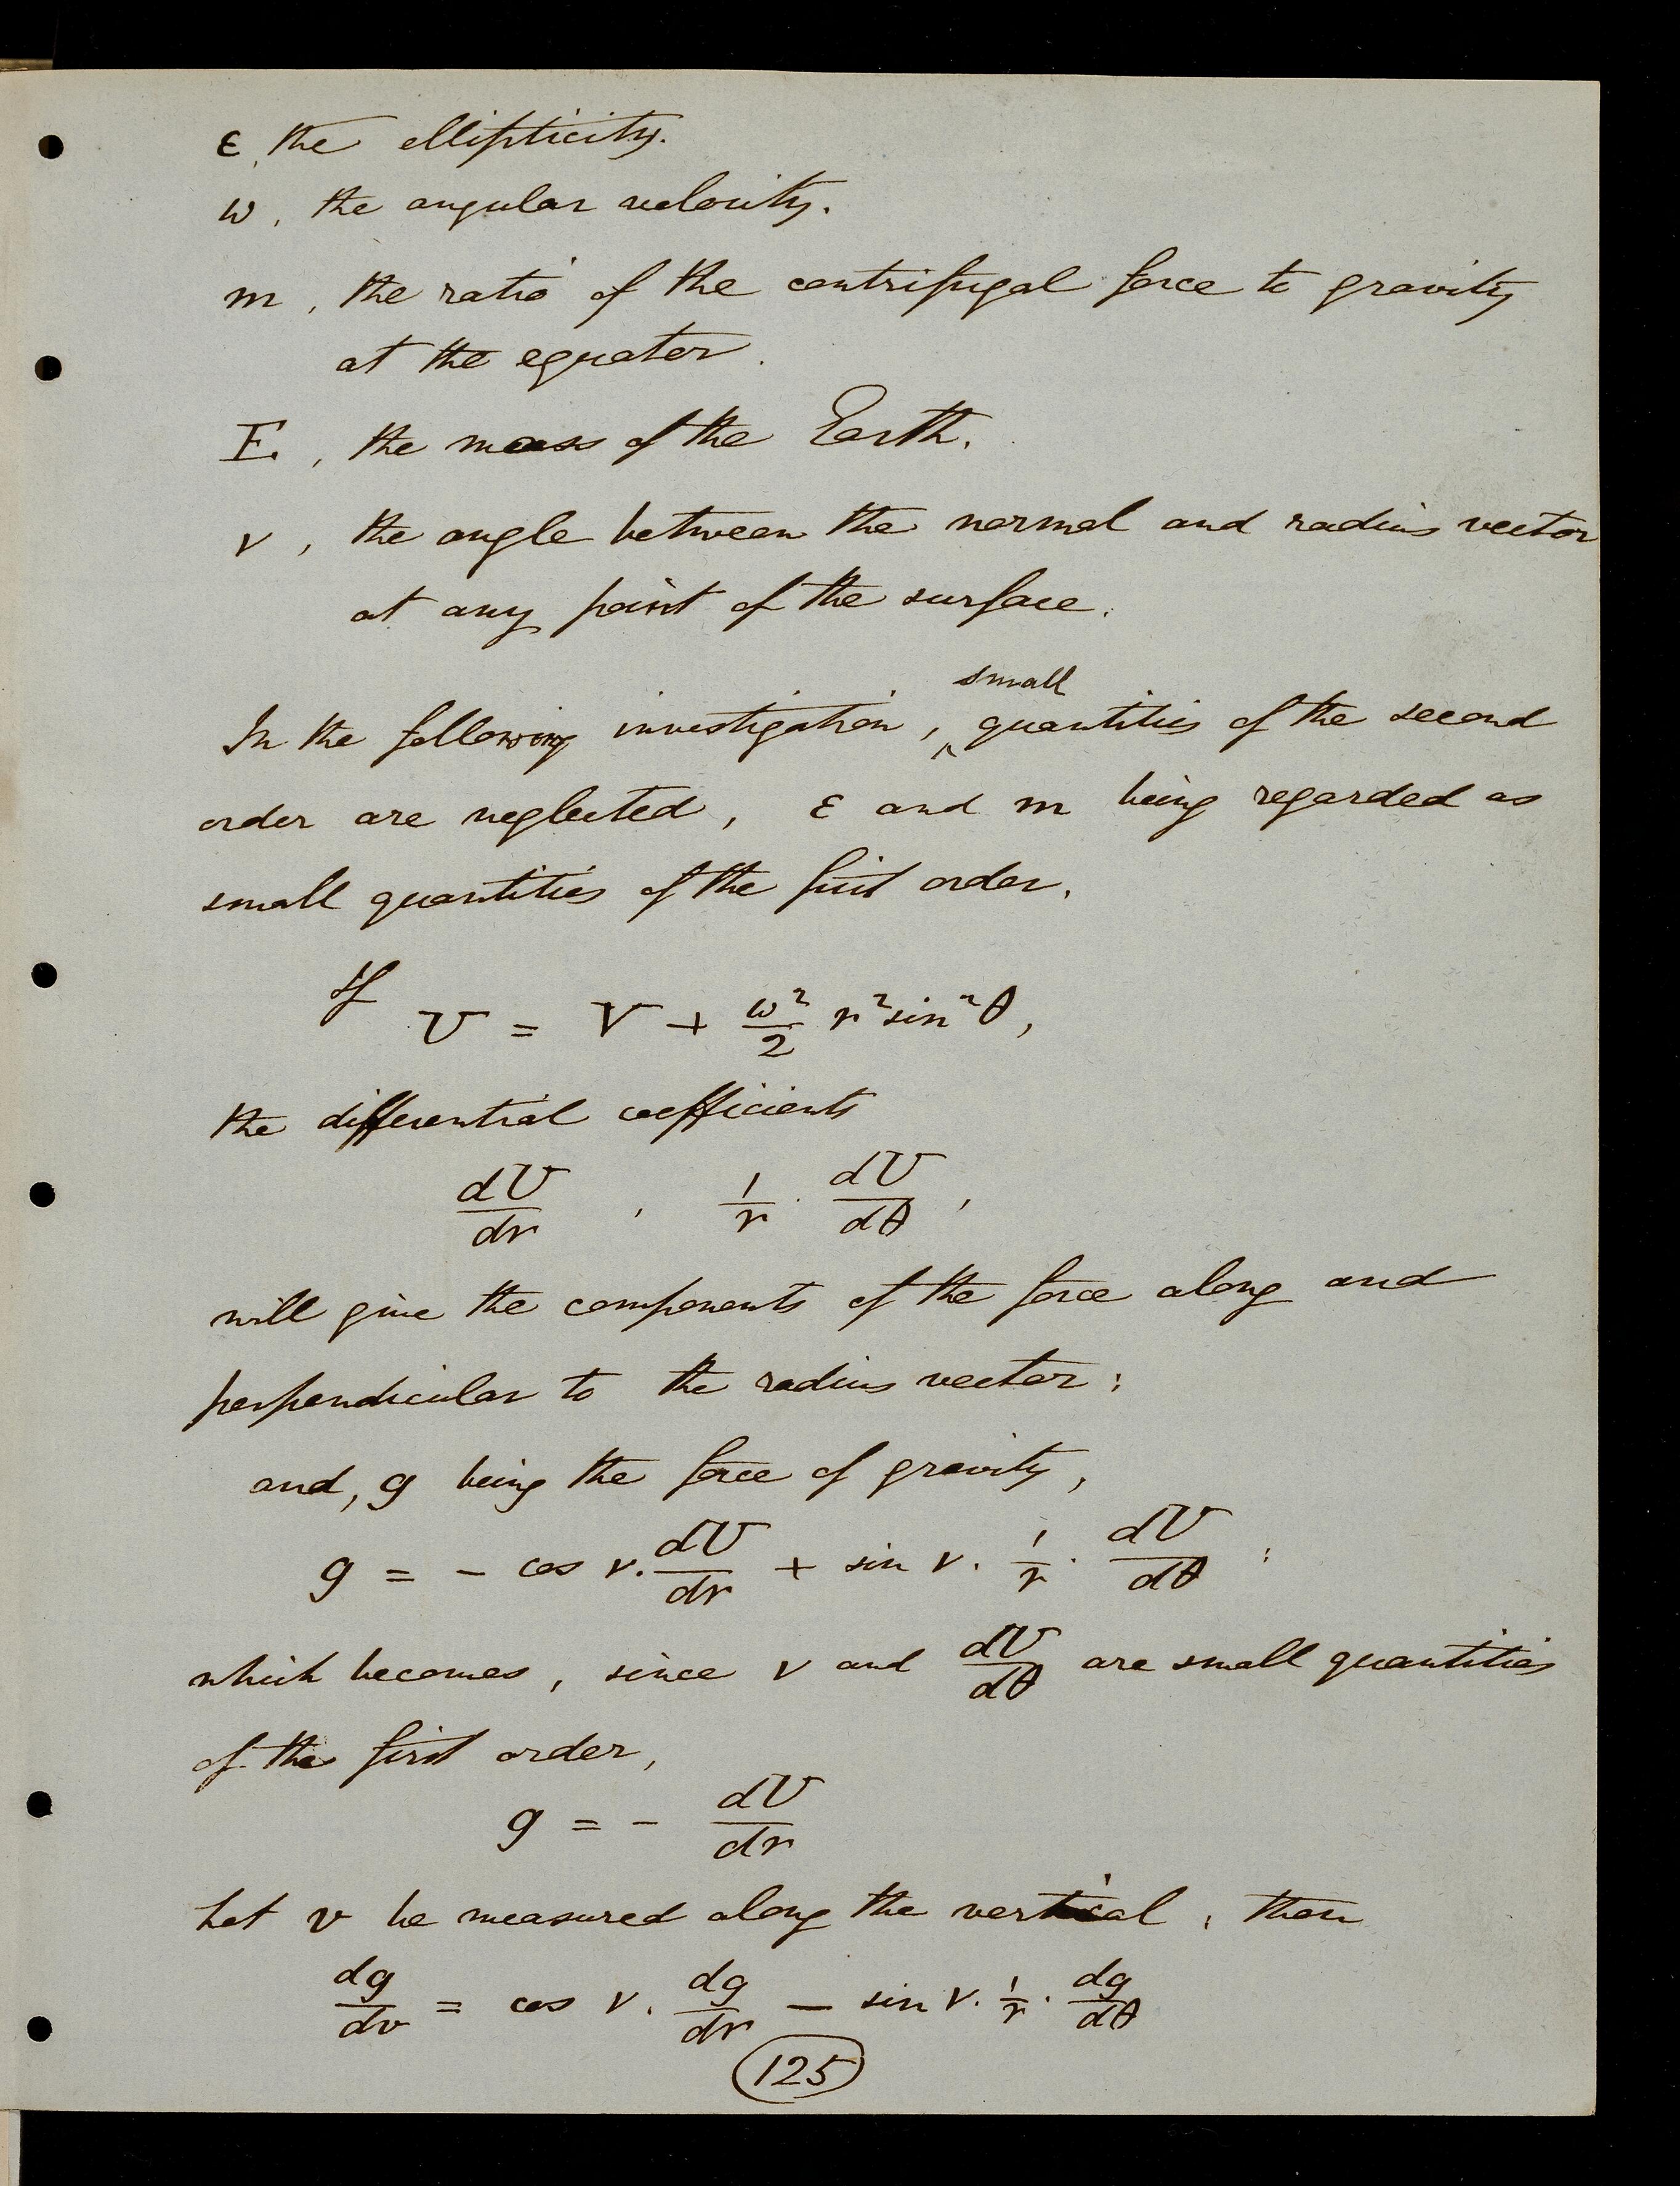 ε, the ellipticity.
ω, the angular velocity.
m, the ratio of the centrifugal force to gravity
at the equator.
E, the mass of the Earth.
ν, the angle between the normal and radius vector
at any point of the surface.
small
In the following investigation, ‸ quantities of the second
order are neglected, ε and m being regarded as
small quantities of the first order.
If
U = V + ω²/2 r² sin²θ,
the differential coefficients
dU/dr , 1/r · dU/dθ ,
will give the components of the force along and
perpendicular to the radius vector;
and, g being the force of gravity,
g = - cos ν. dU/dr + sin ν. 1/r · dU/dθ ;
which becomes, since ν and dU/dθ are small quantities
of the first order,
g = - dU/dr
Let v be measured along the vertical; then
dg/dv = cos ν. dg/dr - sin ν. 1/r · dg/dθ
125